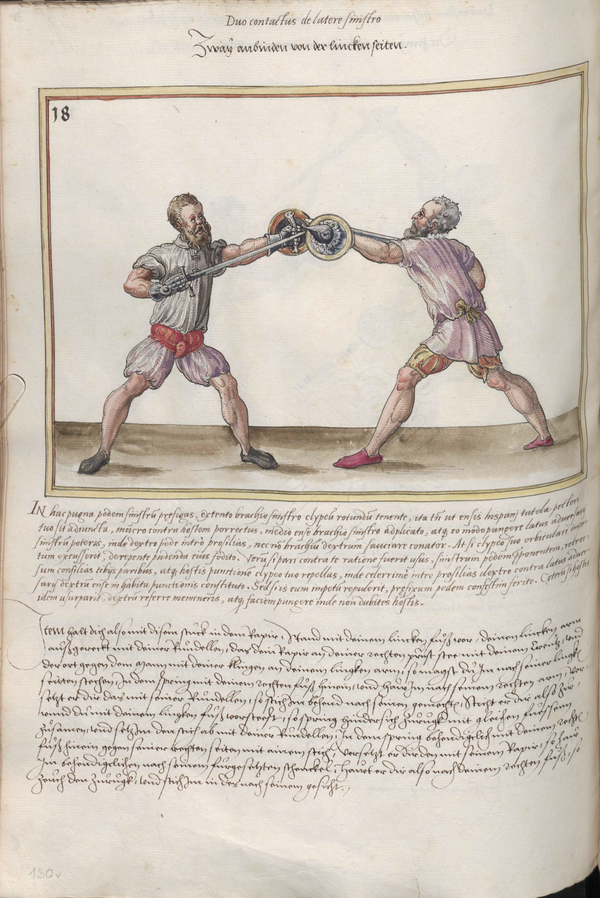 Duo contactus de latere sinistro
Zway anbinden von der lincken seiten.
18
IN hac pugna pedem sinistrũ prefigas, extento brachio sinistro clypeũ rotundũ tenente, ita tñ ut ensis hispani tutela pectori
tuo sit adiuncta, mucro contra hostem porrectus, medio ense brachio sinistro adplicato, atq; eo modo pungere latus adversarii
sinistrũ poteris, inde dextro pede intro prosilias, nec nõ brachiũ dextrum sauciare conator. At si clypeo suo orbiculari
tum excusserit, derepente pudenda eius fodito. Verũ si pari contra te ratione fuerit usus, sinistrum pedem
sum consilias tibijs paribus, atq; hostis punctionẽ clypeo tuo repellas, inde celerrime intro prosilias dextro contra latus adver
sarij dextrũ ense in habitu punctionis constituto. Sed si is eum impetũ repulerit, prefixum pedem consestim ferito. Ceterũ si hostis
idem usurparit, dextrũ referre memineris, atq; faciem pungere inde non dubites hostis.
Item halt dich also mit disem stuck in dem Rapir, Stand mit deinem lincken fuß vor, deinen lincken arm
außgereckt mit deiner Rundellen, das dein Rapir an deiner rechten prust stee mit deinem Creitz, und
der ort gegen dem mann mit deiner klingen an deinem lingken arm, so magst du Im nach seiner lingk
seiten stechen, Indem spring mit deinem rechten fuß hinein, und haw Im nach seinem rechten arm, ver
setzt er dir das mit seiner Rundellen, so stich Im behend nach seinen gemechten, Sticht er dir also her
wann du mit deinem lingken fuß vorsteest, so spring hindersich Zurugk mit gleichen fuessen
Zusamen, und setz Im den stich ab mit deiner Rundellen, In dem spring behendigelich mit deinem rechten
fuß hinein gegen seiner rechten seiten mit ainem stich, versetzt er dir den mit seinem Rapir, so haw
Im behendigelichen nach seinem furgesetzten schenckel, hawt er dir also nach deinem rechten fuß, so
Zeuch den Zurugk, und stich Im in des nach seinem gesicht.
130v